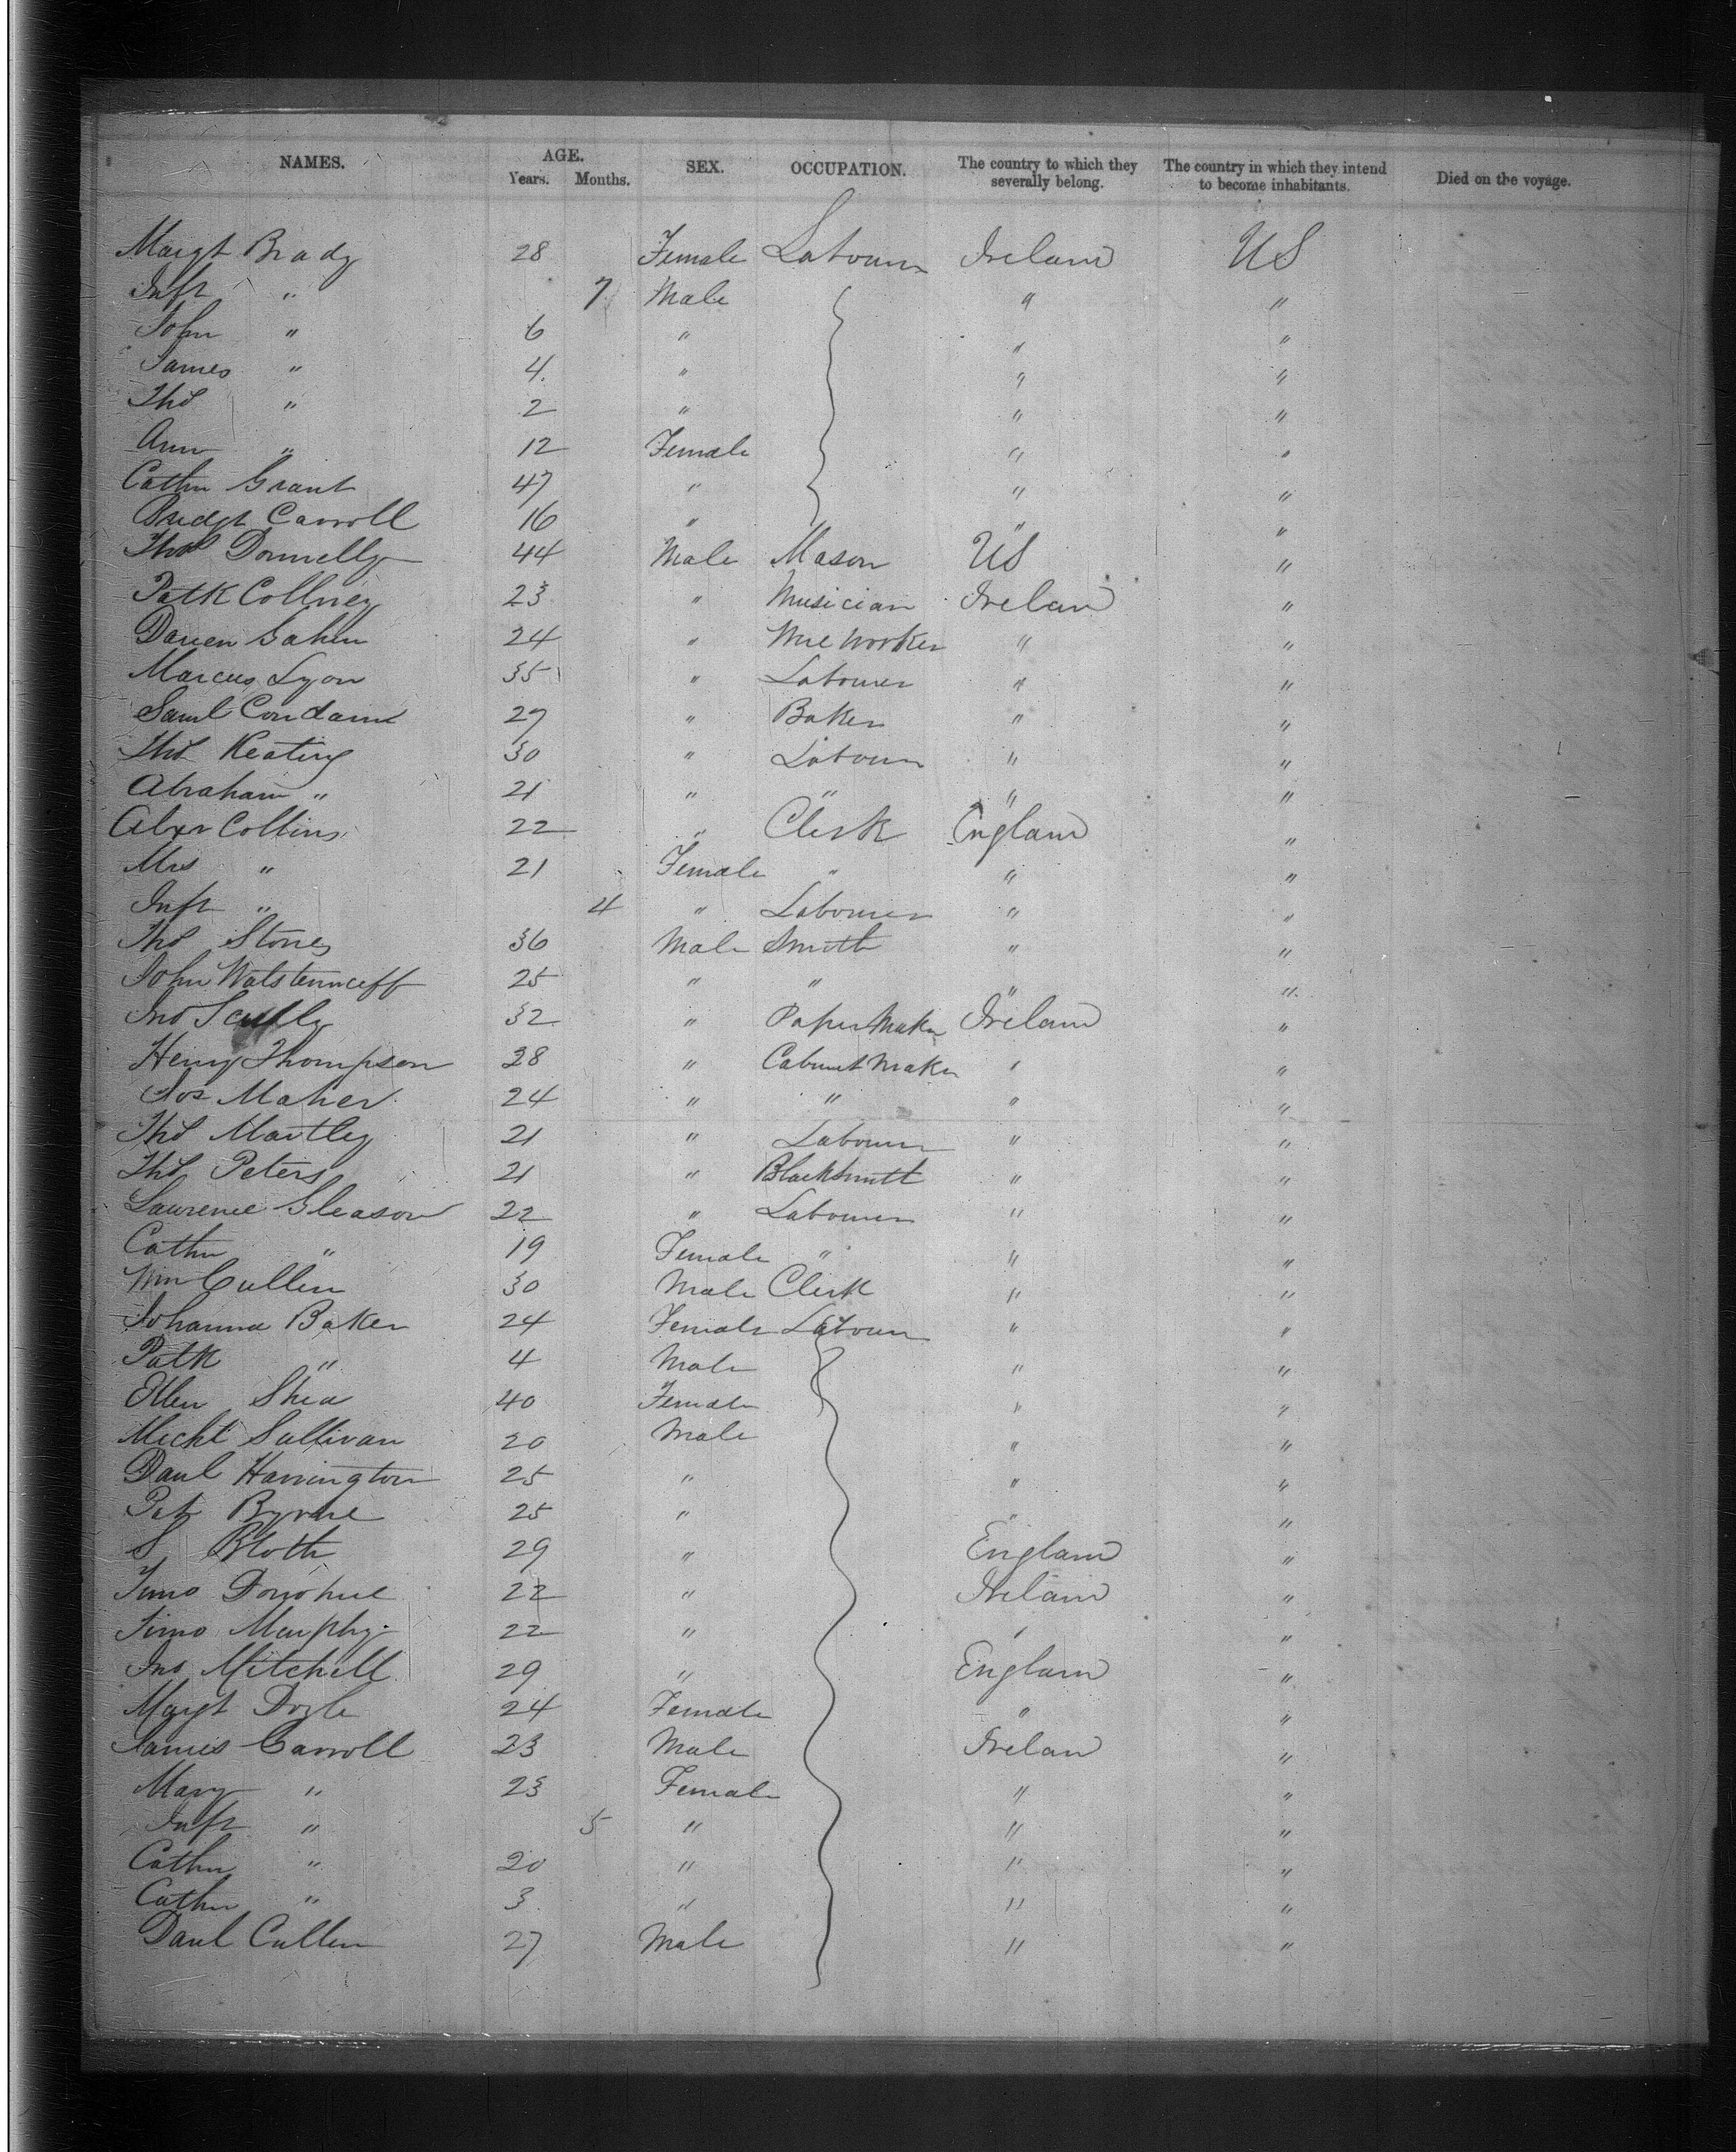 NAMES. AGE. Years. Months. SEX. OCCUPATION. The country to which they severally belong. The country in which they intend to become inhabitants. Died on the voyage.
Margt Brady 28 Female Labourer Ireland US
Inft " 7 Male " "
John " 6 " " "
James " 4 " " "
Thos " 2 " " "
Ann " 12 Female " "
Cathn Grant 47 " " "
Bridgt Carroll 16 " " "
Thos Donnelly 44 Male Mason US "
Patk 23 " Musician Ireland "
24 " Wire Worker " "
Marcus Lyon 35 " Labourer " "
Saml 27 " Baker " "
Thos Keating 30 " Labourer " "
Abraham " 21 " " " "
Alexr Collins 22 " Clerk England "
Mrs " 21 Female " " "
Inft " 4 " Labourer " "
Thos Storey 36 Male Smith " "
John 25 " " " "
Jno Scully 32 " Paper Maker Ireland "
Henry Thompson 28 " Cabinet Maker " "
Jos Maher 24 " " " "
Thos Martley 21 " Labourer " "
Thos Peters 21 " Blacksmith " "
Lawrence Gleason 22 " Labourer " "
Cathn " 19 Female " " "
Wm Cullen 30 Male Clerk " "
Johanna Baker 24 Female Labourer " "
Patk " 4 Male " "
Ellen Shea 40 Female " "
Michl Sullivan 20 Male " "
Danl Harrington 25 " " "
Pat Byrne 25 " " "
S 29 " England "
Timo Donohue 22 " Ireland "
Timo Murphy 22 " " "
Jno Mitchell 29 " England "
Margt Doyle 24 Female " "
James Carroll 23 Male Ireland "
Mary " 23 Female " "
Inft " 5 " " "
Cathn " 20 " " "
Cathn " 3 " " "
Danl Cullen 27 Male " "